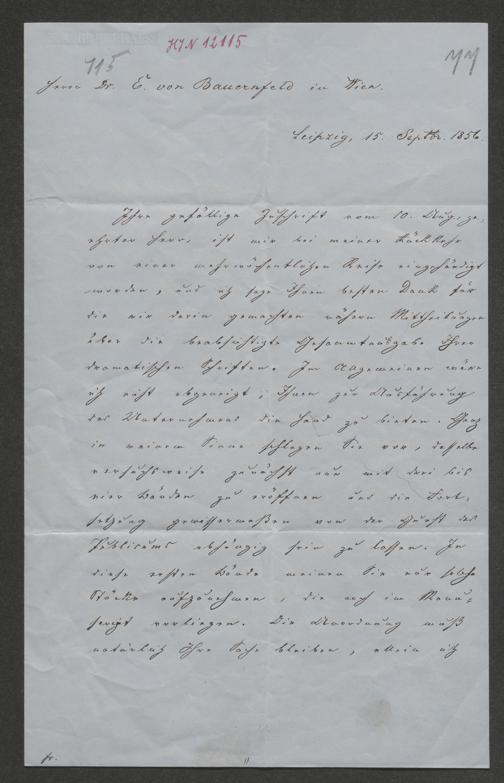 HJN 12115
115
77
Herrn Dr. E. von Bauernfeld in Wien.
Leipzig, 15. Septbr. 1856.
Ihre gefällige Zuschrift vom 10. Aug., ge-
ehrter Herr, ist mir bei meiner Rückkehr
von einer mehrwöchentlichen Reise eingehändigt
worden, und ich sage Ihnen besten Dank für
die mir darin gemachten nähern Mittheilungen
über die beabsichtigte Gesammtausgabe Ihrer
dramatischen Schriften. Im Allgemeinen wäre
ich nicht abgeneigt, Ihnen zur Ausführung
des Unternehmens die Hand zu bieten. Ganz
in meinem Sinne schlagen Sie vor, dasselbe
versuchsweise zunächst nur mit drei bis
vier Bänden zu eröffnen und die Fort-
setzung gewissermaßen von der Gunst des
Publicums abhängig sein zu lassen. In
diese ersten Bände meinen Sie nur solche
Stücke aufzunehmen, die noch im Manu-
script vorliegen. Die Anordnung muß
natürlich Ihre Sache bleiben, allein ich
fr.